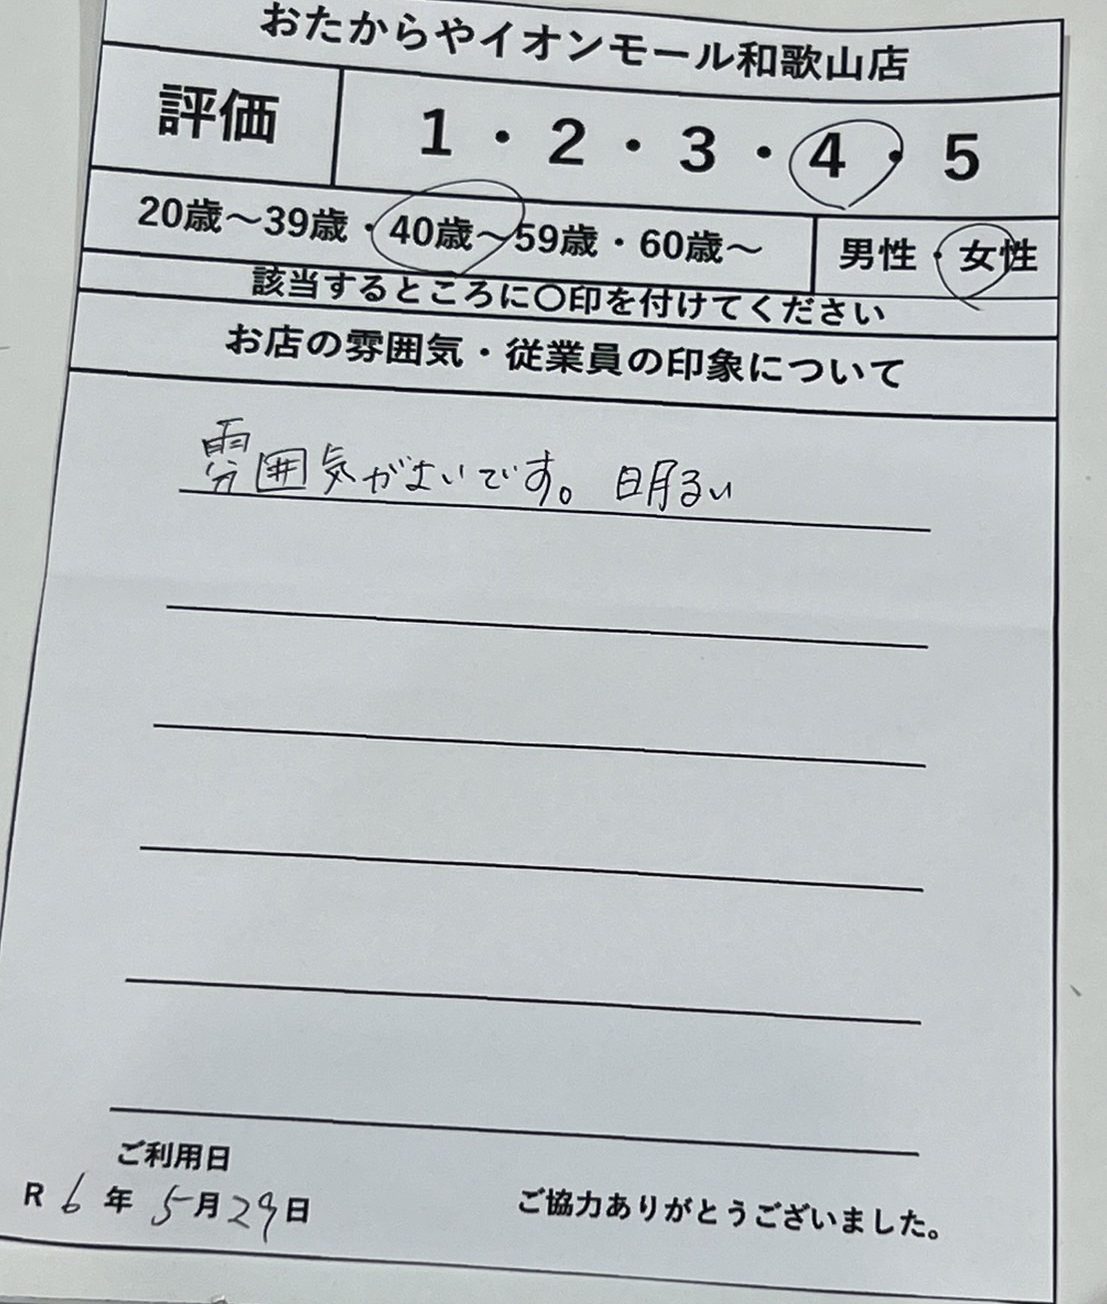 おたからやイオンモール和歌山店
評価 1・2・3・4・5
20歳〜39歳・40歳〜59歳・60歳〜 男性・女性
該当するところに〇印を付けてください
お店の雰囲気・従業員の印象について
雰囲気がよいです。明るい
ご利用日
R 6 年 5 月 29 日 ご協力ありがとうございました。